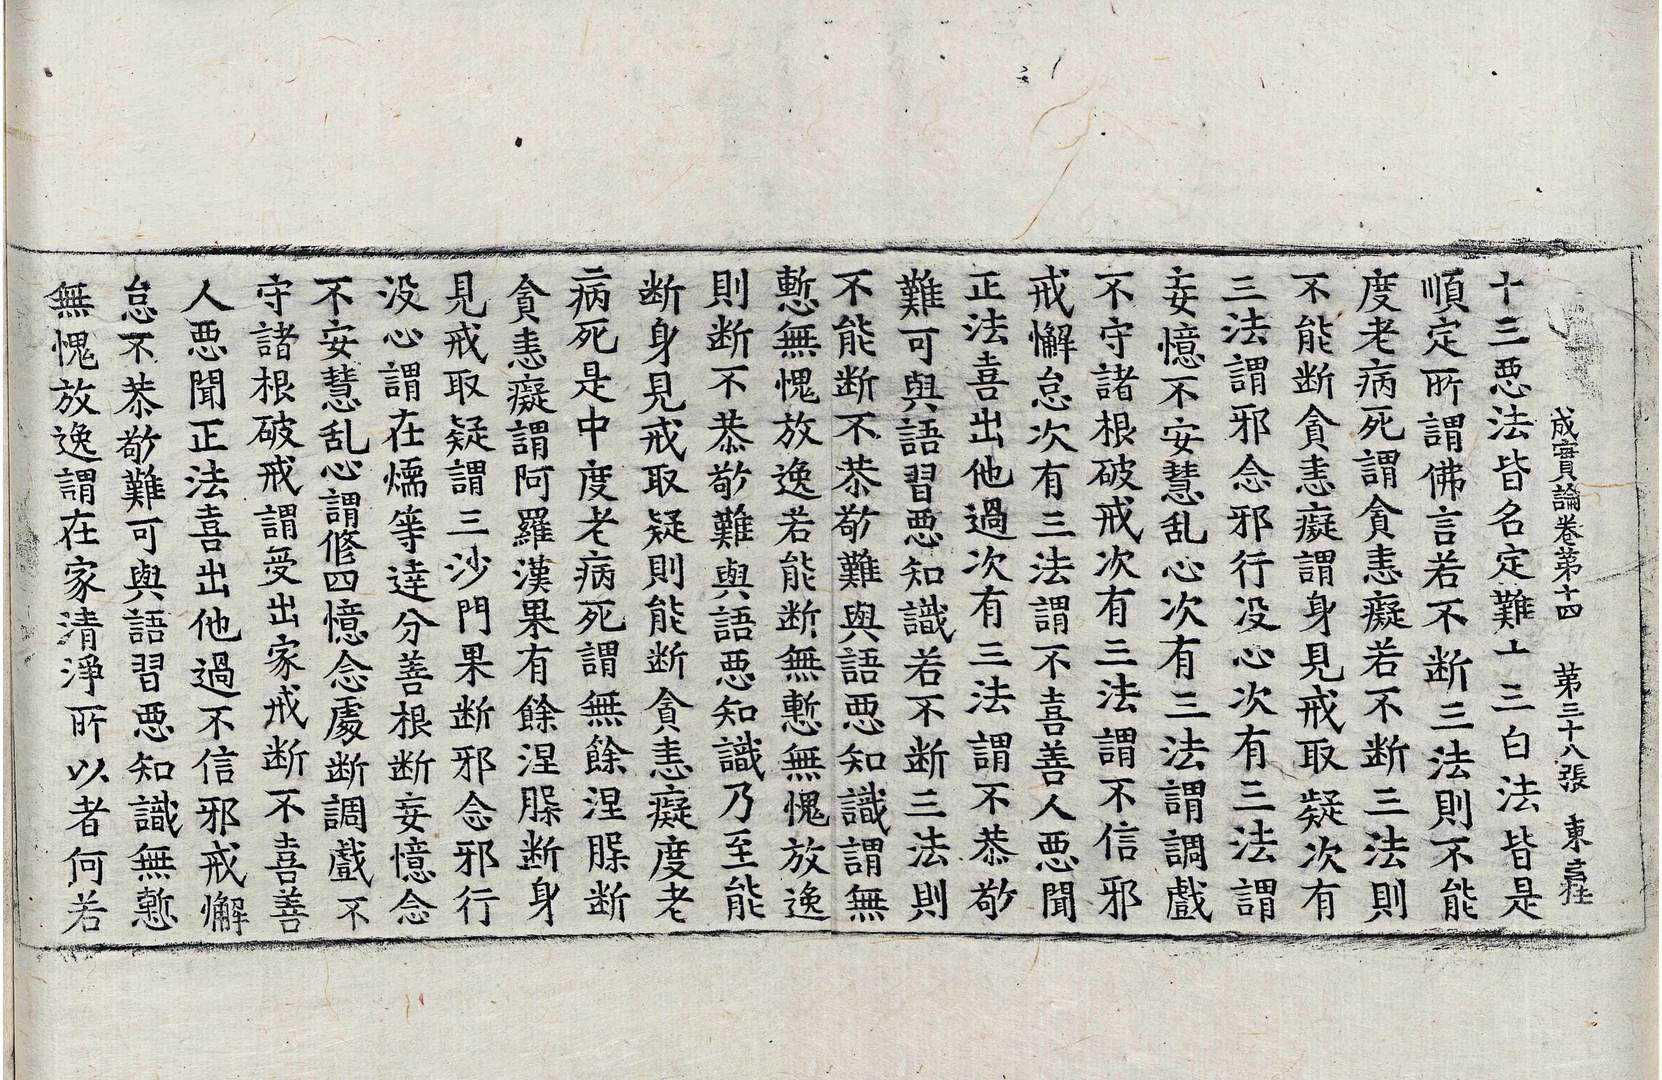 成實論卷第十四 第三十八張 東
十三悪法皆名定難二三白法皆是
順定所謂佛言若不断三法則不能
度老病死謂貪恚癡若不断三法則
不能断貪恚癡謂身見戒取疑次有
三法謂邪念邪行没心次有三法謂
妄憶不安慧乱心次有三法謂調戲
不守諸根破戒次有三法謂不信邪
戒懈怠次有三法謂不喜善人悪聞
正法喜出他過次有三法謂不恭敬
難可與語習悪知識若不断三法則
不能断不恭敬難與語悪知識謂無
慙無愧放逸若能断無慙無愧放逸
則断不恭敬難與語悪知識乃至能
断身見戒取疑則能断貪恚癡度老
病死是中度老病死謂無餘涅槃断
貪恚癡謂阿羅漢果有餘涅槃断身
見戒取疑謂三沙門果断邪念邪行
没心謂在燸等達分善根断妄憶念
不安慧乱心謂修四憶念處断調戲不
守諸根破戒謂受出家戒断不喜善
人悪聞正法喜出他過不信邪戒懈
怠不恭敬難可與語習悪知識無慙
無愧放逸謂在家清淨所以者何若